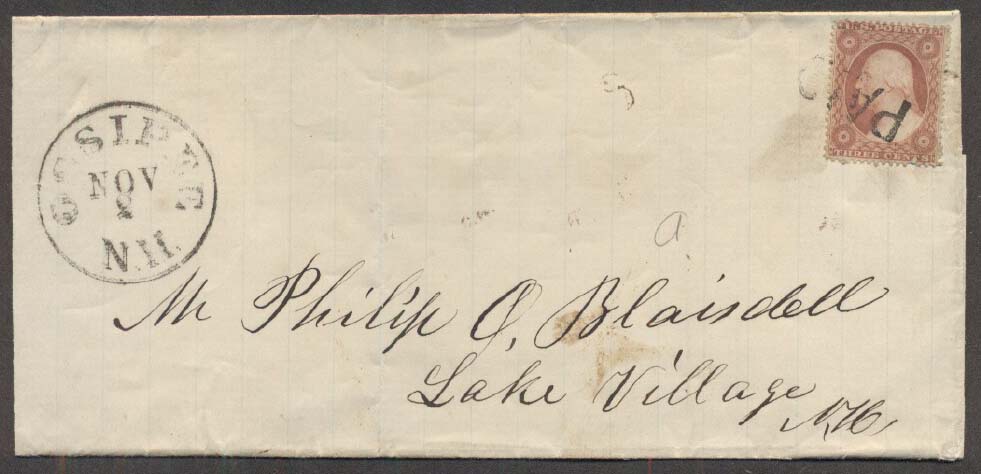 U.S. POSTAGE
PAID
THREE CENTS
OSSIPEE
NOV
2
N.H.
Mr Philip O. Blaisdell
Lake Village
N.H.